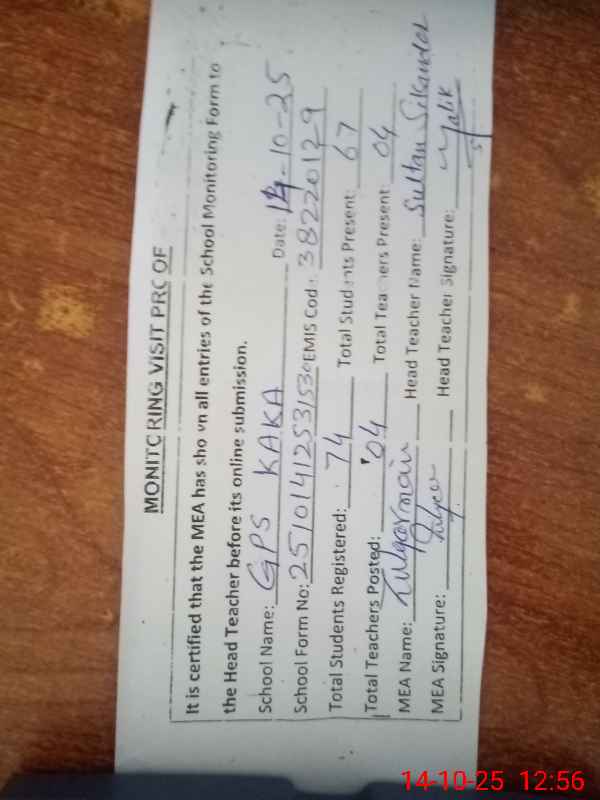 MONITORING VISIT PROOF
It is certified that the MEA has shown all entries of the School Monitoring Form to
the Head Teacher before its online submission.
School Name: GPS KAKA Date: 14-10-25
School Form No: 25101412531530 EMIS Code: 38220129
Total Students Registered: 74 Total Students Present: 67
Total Teachers Posted: 04 Total Teachers Present: 04
MEA Name: Head Teacher Name: Sultan Sikandar
MEA Signature: Head Teacher Signature: Malik
14-10-25 12:56